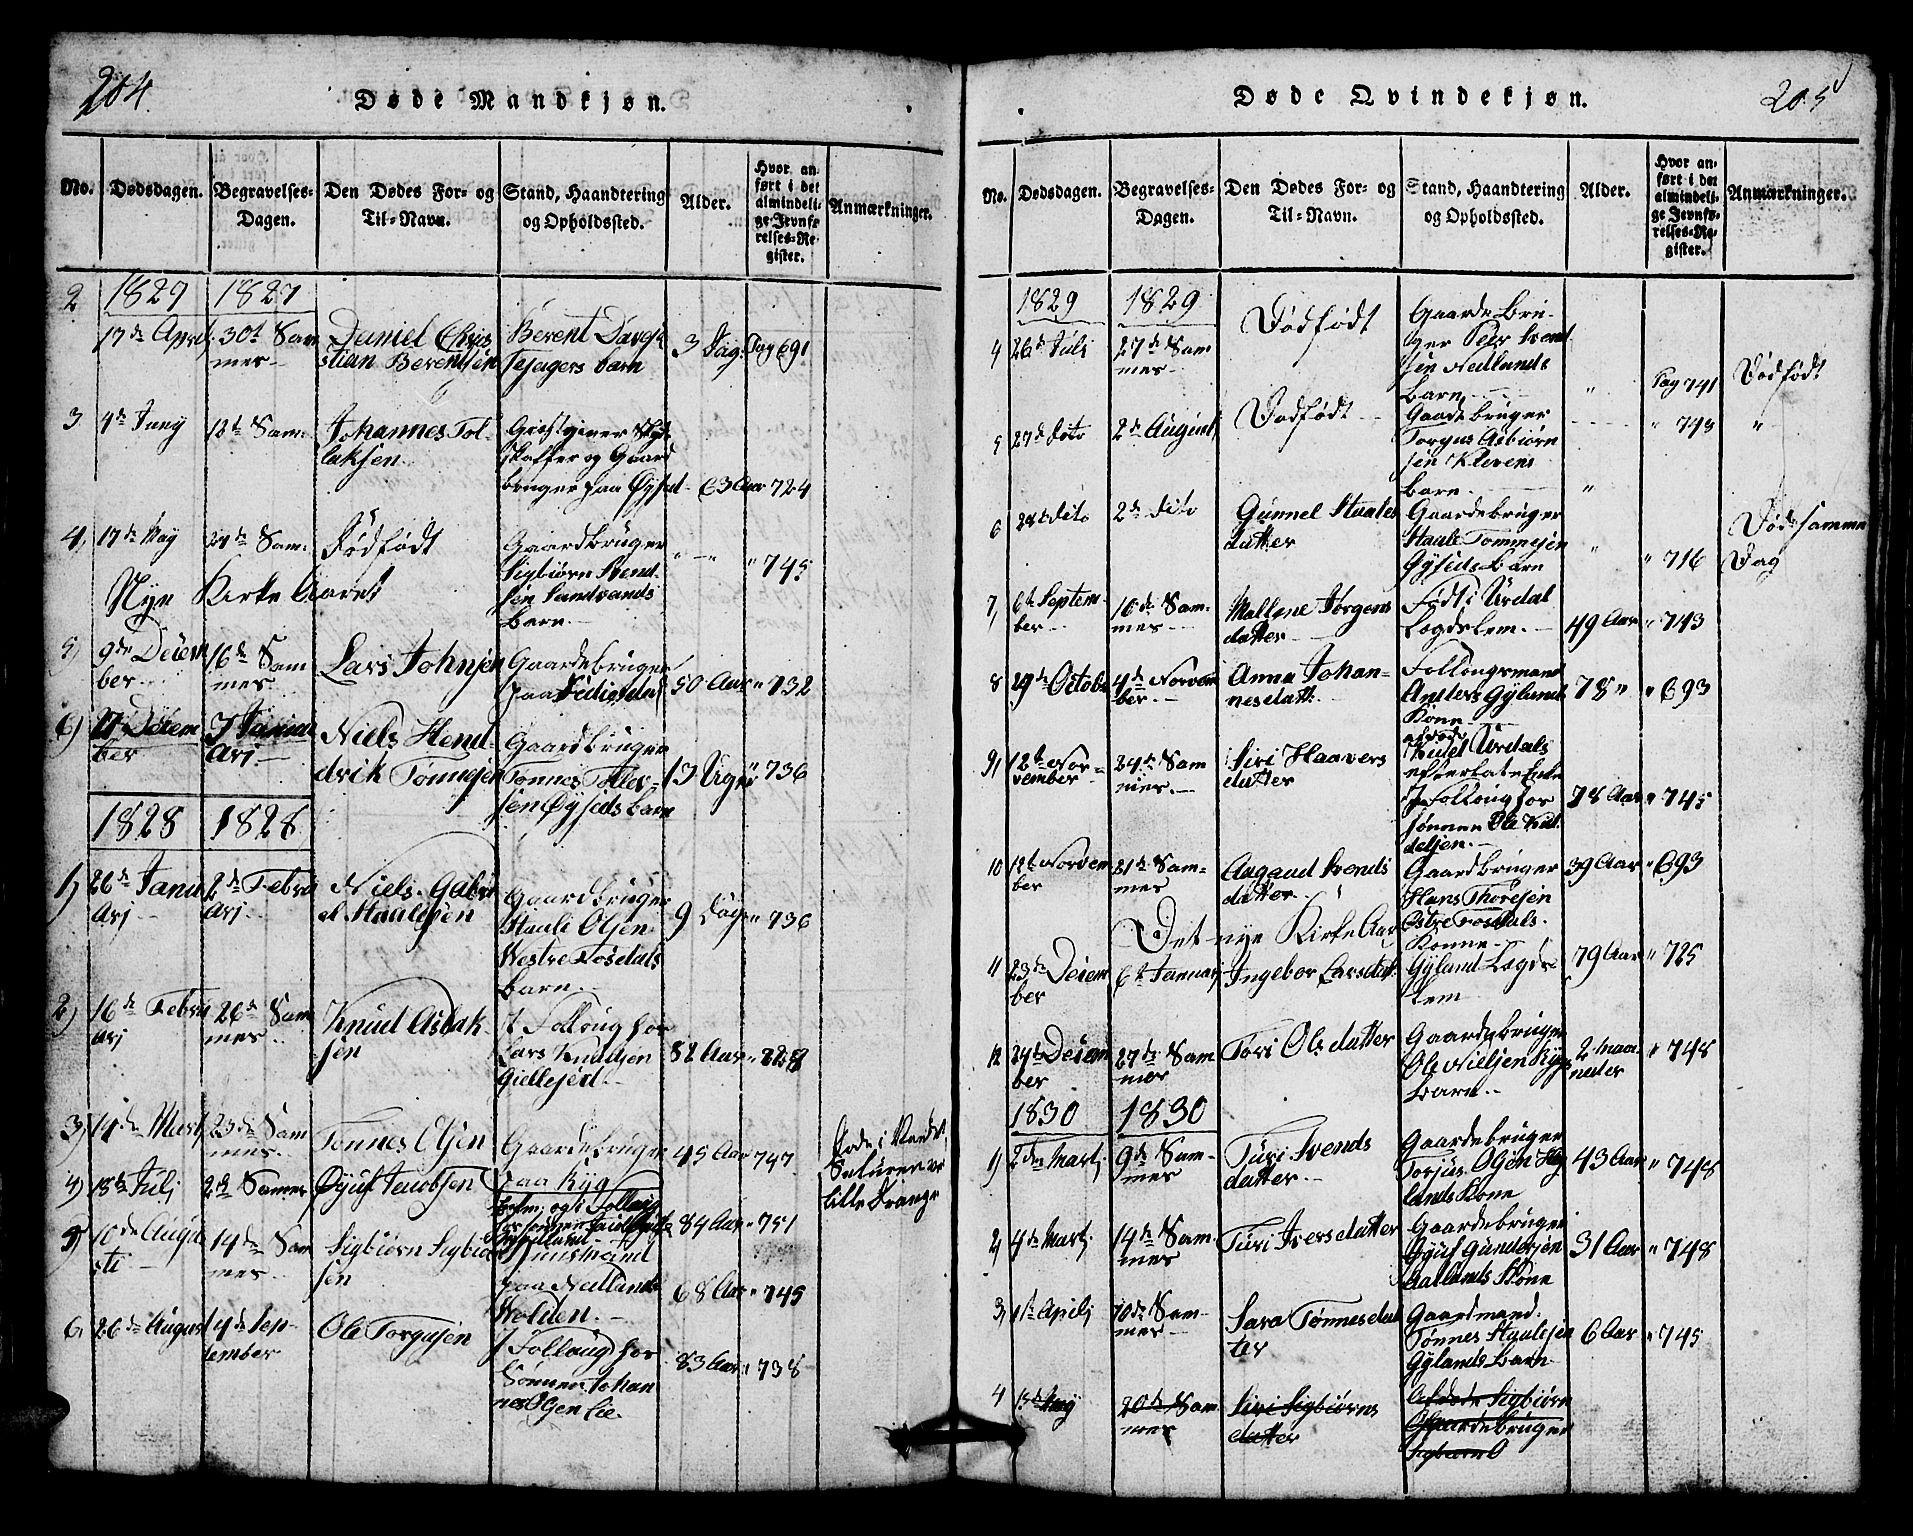 204.
Døde Mandkjøn.
No.
Dødsdagen.
Begravelses-
Dagen.
Den Dødes For- og
Til-Navn.
Stand, Haandtering
og Opholdssted.
Alder.
Hvor an-
ført i det
almindeli-
ge Jevnfø-
relses-Re-
gister.
Anmærkninger.
2 1827 1827
17de April 30t Sam
mes
Daniel Chris
stian Berentsen
Berent
barn
3 Dag. Pag 691
3 4de Juny
Sam-
Johannes Tol-
laksen
og Gaard
bruger paa Øysæd
63 Aar 724
4, 17de May 24de Sam-
Dødfødt
Gaardbruger
Sigbiørn Svend-
sen Sandvands
Barn
" 745
Nye Kirke Aaret
5) 9de Decem
ber
16de Sam
mes
Lars Johnsen
Gaardebruger
paa
50 Aar " 732
6) 27 Decem
ber
3 Januar
Arj
Niels Hend
drik Tønnesen
Gaardbruger
Tønnes Tollev-
sen Øyseds barn
13 Uger " 736
1828 1828
1) 26de Janu
Arj
2de Febru
Arj
Niels Gabri
el Staalesen
Gaardbruger
Staale Olsen
Westre Rosdals
Barn
9 Dage " 736
2) 16de Febru
arj
26de Sam
mes
Knud Aslak-
sen
I Follaug hos
Lars Knudsen
82 Aar
3) 14de Mart 23de Sam
mes
Tønnes Olsen
Gaardebruger
paa Ryg
45 Aar 747
4) 18de Juli
Øyuf Jacobsen
84 Aar " 751
Døde i
lille Drange
5) 10de Augu
sti
19de Sam
mes
Sigbiørn Sigbiørn
sen
Huusmand
paa Nedlands
Wolden
68 Aar " 745
6, 26de August 4de Sep-
tember
Ole Torgusen
I Follaug hos
Sønnen Johan
nes Olsen Lie
83 Aar " 738
205
Døde Qvindekjøn.
No.
Dødsdagen.
Begravelses-
Dagen.
Den Dødes For- og
Til-Navn.
Stand, Haandtering
og Opholdssted.
Alder.
Hvor an-
ført i det
almindeli-
ge Jevnfø-
relses-Re-
gister.
Anmærkninger.
1829 1829
4 26de Juli 27de Sam
mes
Dødfødt
Gaardebru-
ger Peder Svend
sen Nedlands
Barn
" Pag 741
Dødfødt
5 27de dito 2de August
Dødfødt
Gaardbruger
Torgus Asbiørn
sen Klevens
Barn
" 743 "
6 28de dito 2de dito
Gunnel Staales
datter
Gaardebruger
Staale Tommesen
Gyseds Barn
" " 716
Død samme
Dag
7, 6te Septem-
ber
16de Sam-
mes
Mallene Jørgens
datter
Født i Urdal
Lægdslem
49 Aar " 743
8 29de Octobr 4de Novem
ber
Anna Johan-
nesdatt.
Follougsmand
Anders Gylands
Kone
78 " " 693
9, 12te No-
vember
24de Sam
mes
Siri Haavors
datter
Afdøde
Knud Urdals
efterlatte Enke
I Folloug hos
sønnen Ole Knu
delsen
78 Aar " 745
10 12te Novem
ber
21de Sam-
mes
Aagaud Svends
datter
Gaardbruger
Hans Thoresen
Østre Rosdals
Konne
39 Aar " 693
Det nye Kirke Aar
11 23de Decem
ber
6te Januarj
Ingebor Larsdat.
Gyland Lægds-
lem
79 Aar " 725
12 24de Decem
ber
27de Sam
mes
Tori Olsdatter
Gaardebruger
Ole Nielsen Ryg
Barn
2 Maa
neder
" 748
1830 1830
1) 2den Martj 9de Sam-
mes
Turi Svends
datter
Gaardebruger
Torjus Olsen
lands Kone
43 Aar " 748
2, 4de Martj 14de Sam-
mes
Turi Iversdatter
Gaardebruger
Øyuf Gundersen
Aatlands Kone
31 Aar " 748
3, 1ste Aprilj Sam-
mes
Sara Tønnesdat
ter
Gaardmand
Tønnes Staalesen
Gylands Barn
6 Aar " 745
4 May 20de Sam
mes
Siri Sigbiørns
datter
Afdøde Sigbiørn
Gaardebruger
Sigbiørn O